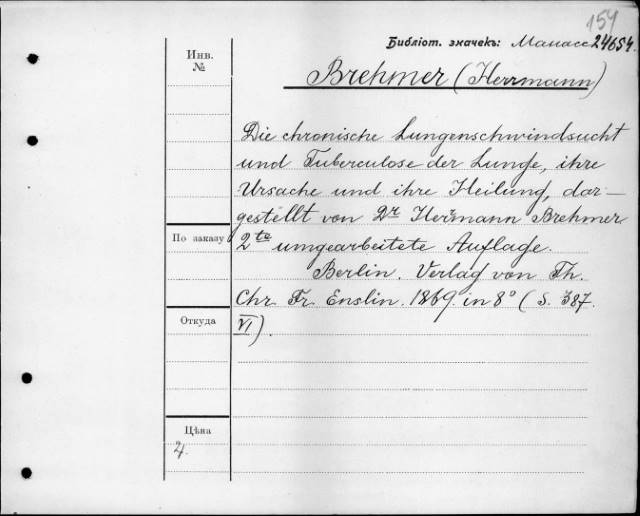 154
Библіот. значекъ: Манасс 24654.
Инв. №
Brehmer (Herrmann)
Die chronische Lungenschwindsucht
und Tuberculose der Lunge, ihre
Ursache und ihre Heilung, dar-
gestellt von Dr Herrmann Brehmer
По заказу
2te umgearbeitete Auflage.
Berlin. Verlag von Th.
Chr. Fr. Enslin. 1869. in 8° (S. 387.
Откуда
VI).
Цѣна
4.